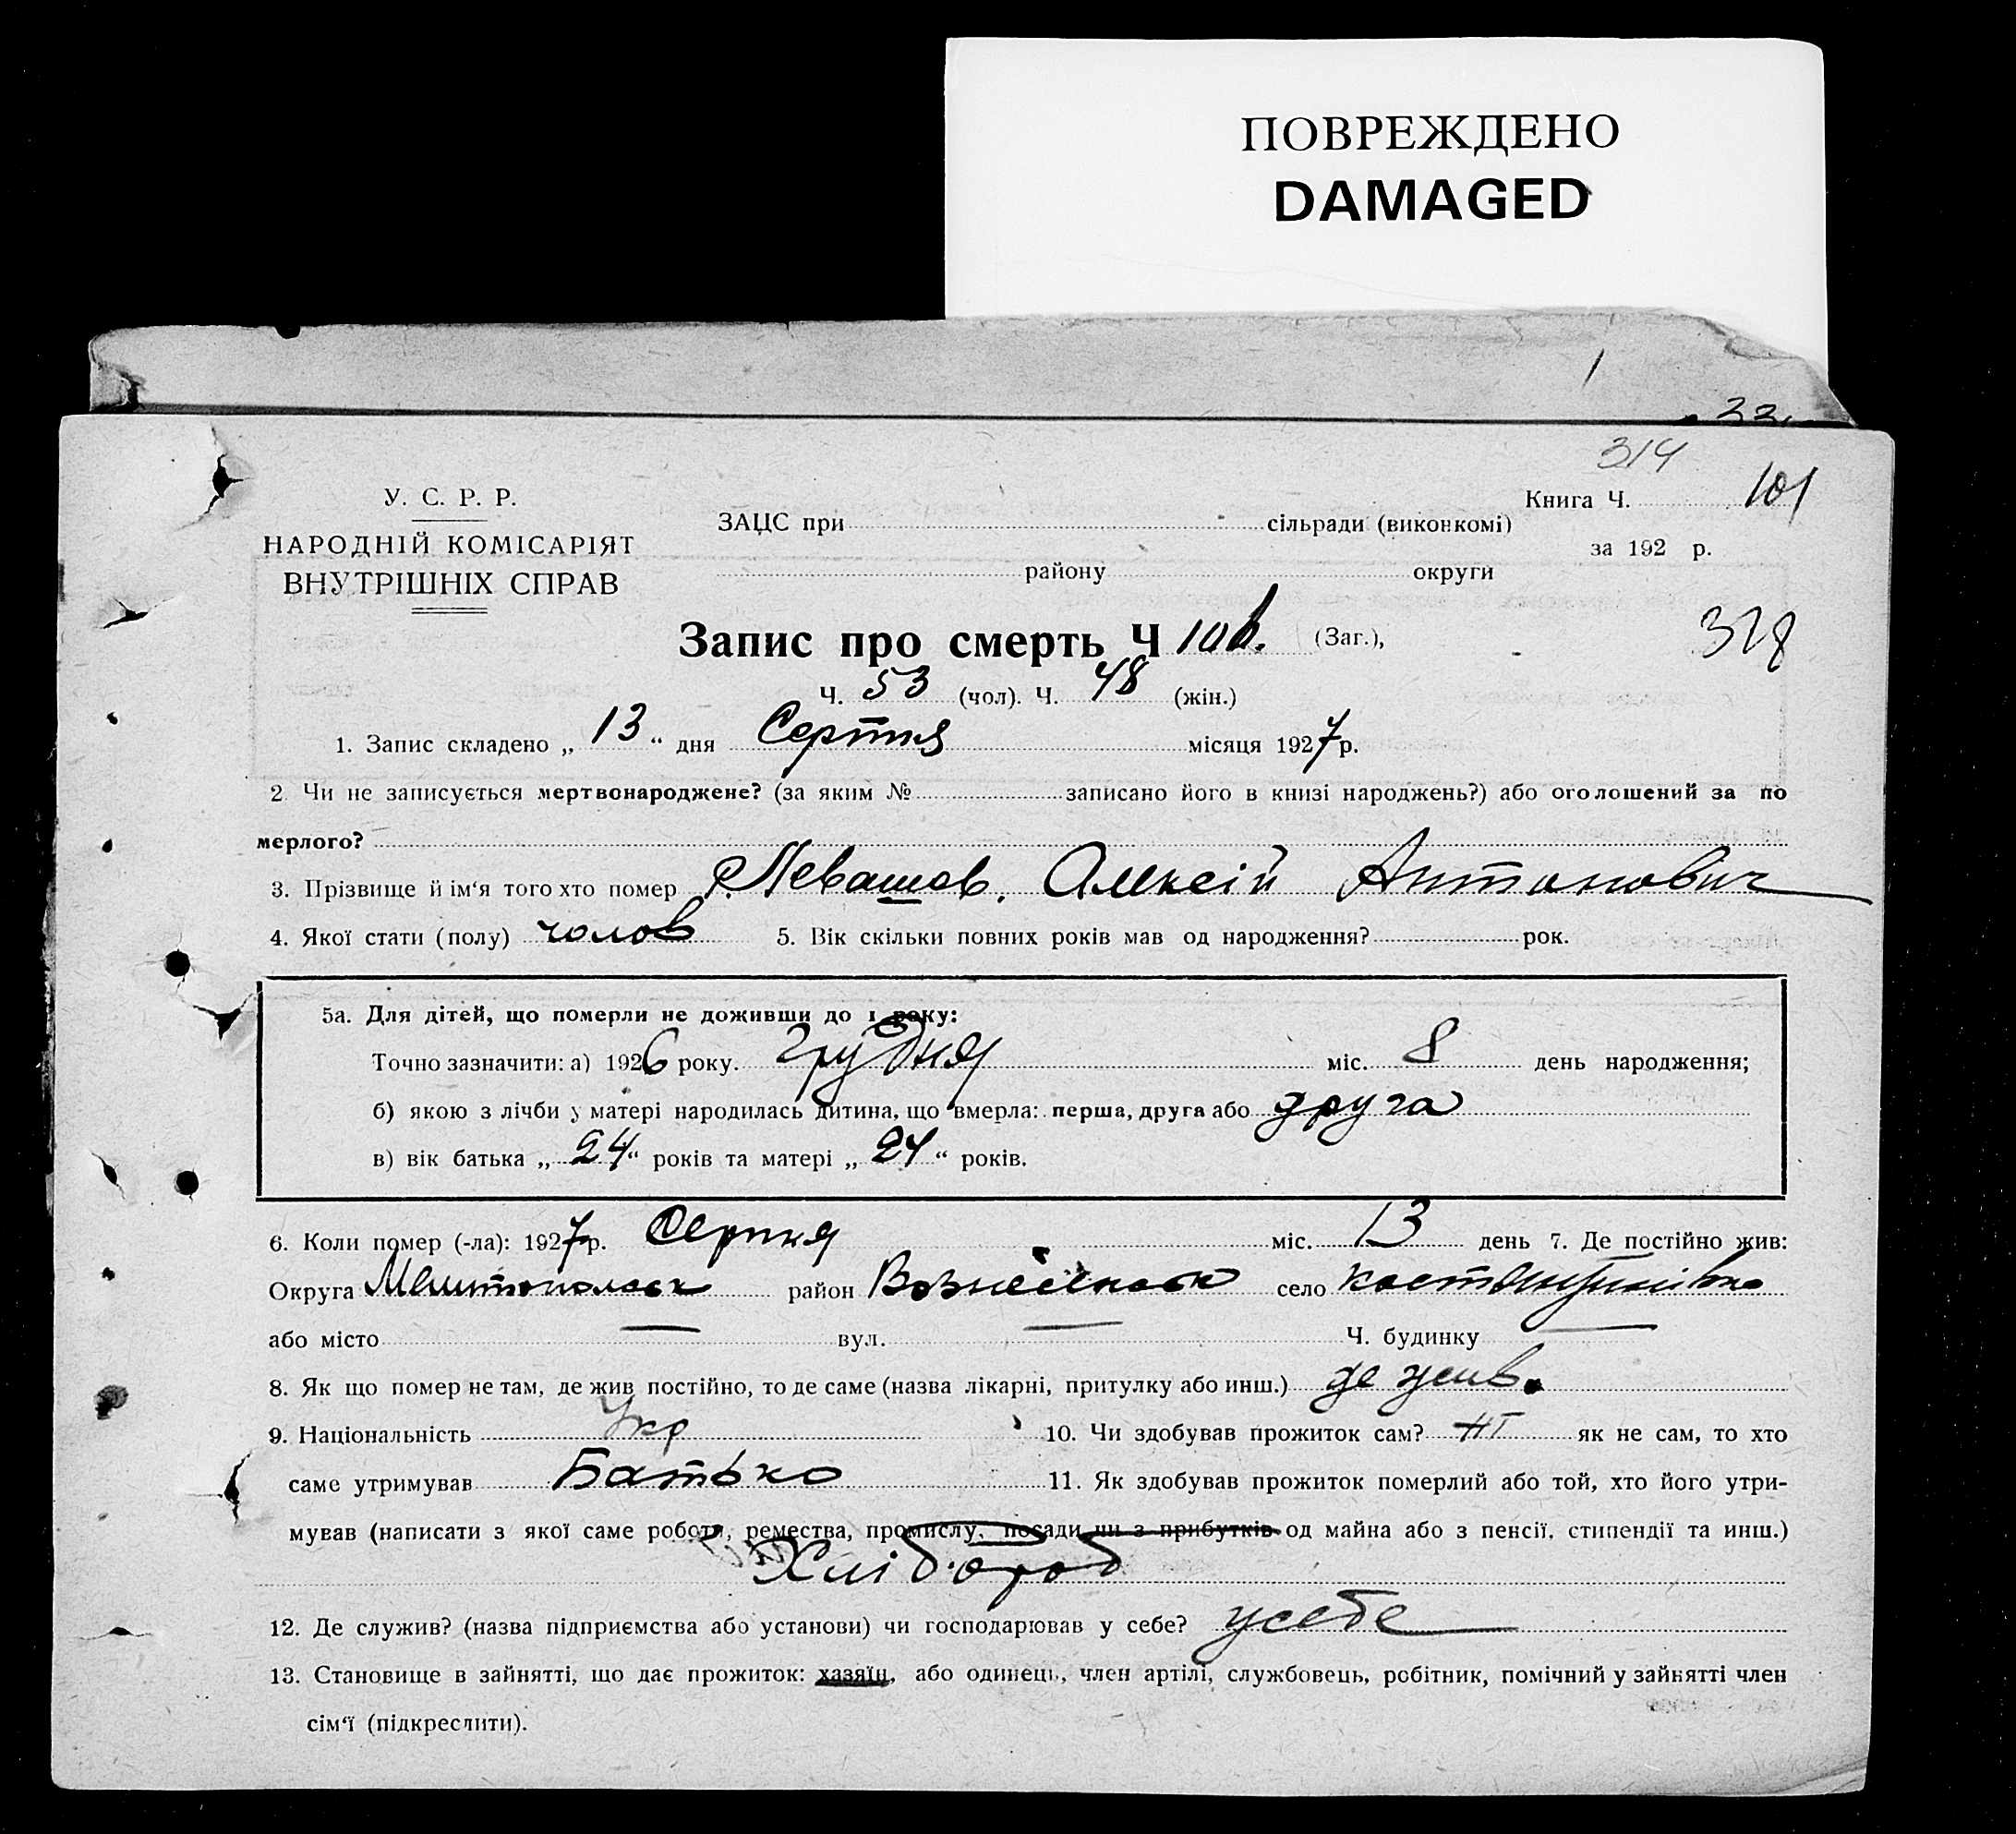 ПОВРЕЖДЕНО
DAMAGED
1
33
314
У. С. Р. Р.
НАРОДНІЙ КОМІСАРІЯТ
ВНУТРІШНІХ СПРАВ
Книга Ч. 101
ЗАЦС при сільради (виконкомі)
за 192 р.
району округи
Запис про смерть Ч 101. (Заг.),
328
Ч. 53 (чол). Ч. 48 (жін.)
1. Запис складено „ 13 “ дня Серпня місяця 1927 р.
2. Чи не записується мертвонароджене? (за яким № записано його в книзі народжень?) або оголошений за по
мерлого?
3. Прізвище й ім'я того хто помер Левашов, Алексій Антонович
4. Якої стати (полу) чолов 5. Вік скільки повних років мав од народження? рок.
5а. Для дітей, що померли не доживши до 1 року:
Точно зазначити: а) 1926 року. грудня міс. 8 день народження;
б) якою з лічби у матері народилась дитина, що вмерла: перша, друга або друга
в) вік батька „ 24 “ років та матері „ 24 “ років.
6. Коли помер (-ла): 1927 р. Серпня міс. 13 день 7. Де постійно жив:
Округа Мелитопольськ район Вознесенськ село Костянтинівка
або місто — вул. — Ч. будинку —
8. Як що помер не там, де жив постійно, то де саме (назва лікарні, притулку або инш.) де жив.
9. Національність Укр 10. Чи здобував прожиток сам? ні як не сам, то хто
саме утримував Батько 11. Як здобував прожиток померлий або той, хто його утри-
мував (написати з якої саме роботи, ремества, промислу, посади чи з прибутків од майна або з пенсії, стипендії та инш.)
Хлібороб
12. Де служив? (назва підприємства або установи) чи господарював у себе? усебе
13. Становище в зайнятті, що дає прожиток: хазяїн, або одинець, член артілі, службовець, робітник, помічний у зайнятті член
сім'ї (підкреслити).